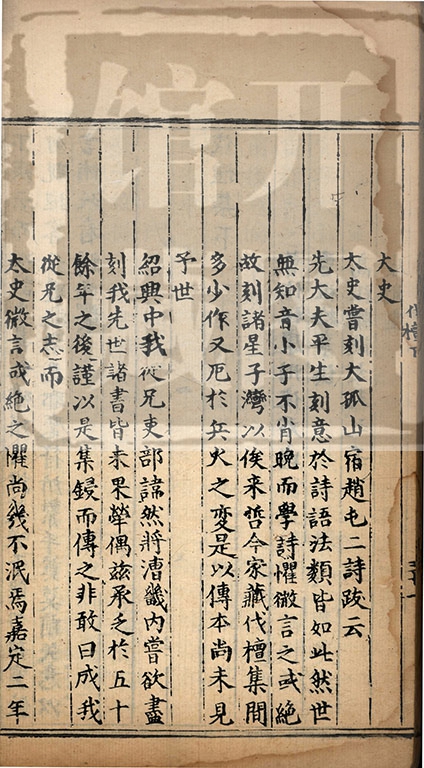 太史
太史嘗刻大孤山宿趙屯二詩跋云
先大夫平生刻意於詩語法類皆如此然世
無知音小子不肖晚而學詩懼微言之或絕
故刻諸星子灣以俟来哲今家藏伐檀集間
多少作又厄於兵火之變是以傳本尚未見
于世
紹興中我從兄吏部諱然將漕畿內嘗欲盡
刻我先世諸書皆未果犖偶兹承乏於五十
餘年之後謹以是集鋟而傳之非敢曰成我
從兄之志而
太史微言或絕之懼尚幾不泯焉嘉定二年